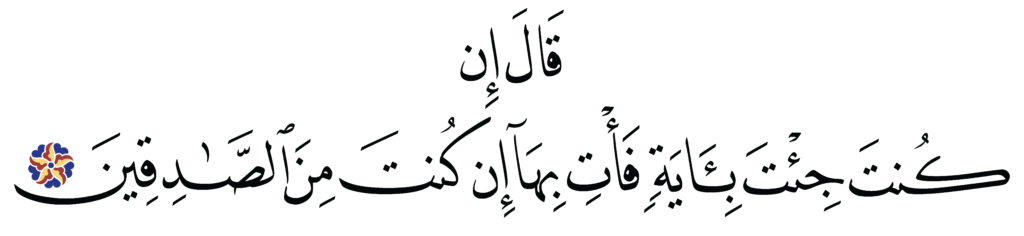 قَالَ إِن
كُنتَ جِئْتَ بِـَٔايَةٍ فَأْتِ بِهَآ إِن كُنتَ مِنَ ٱلصَّـٰدِقِينَ